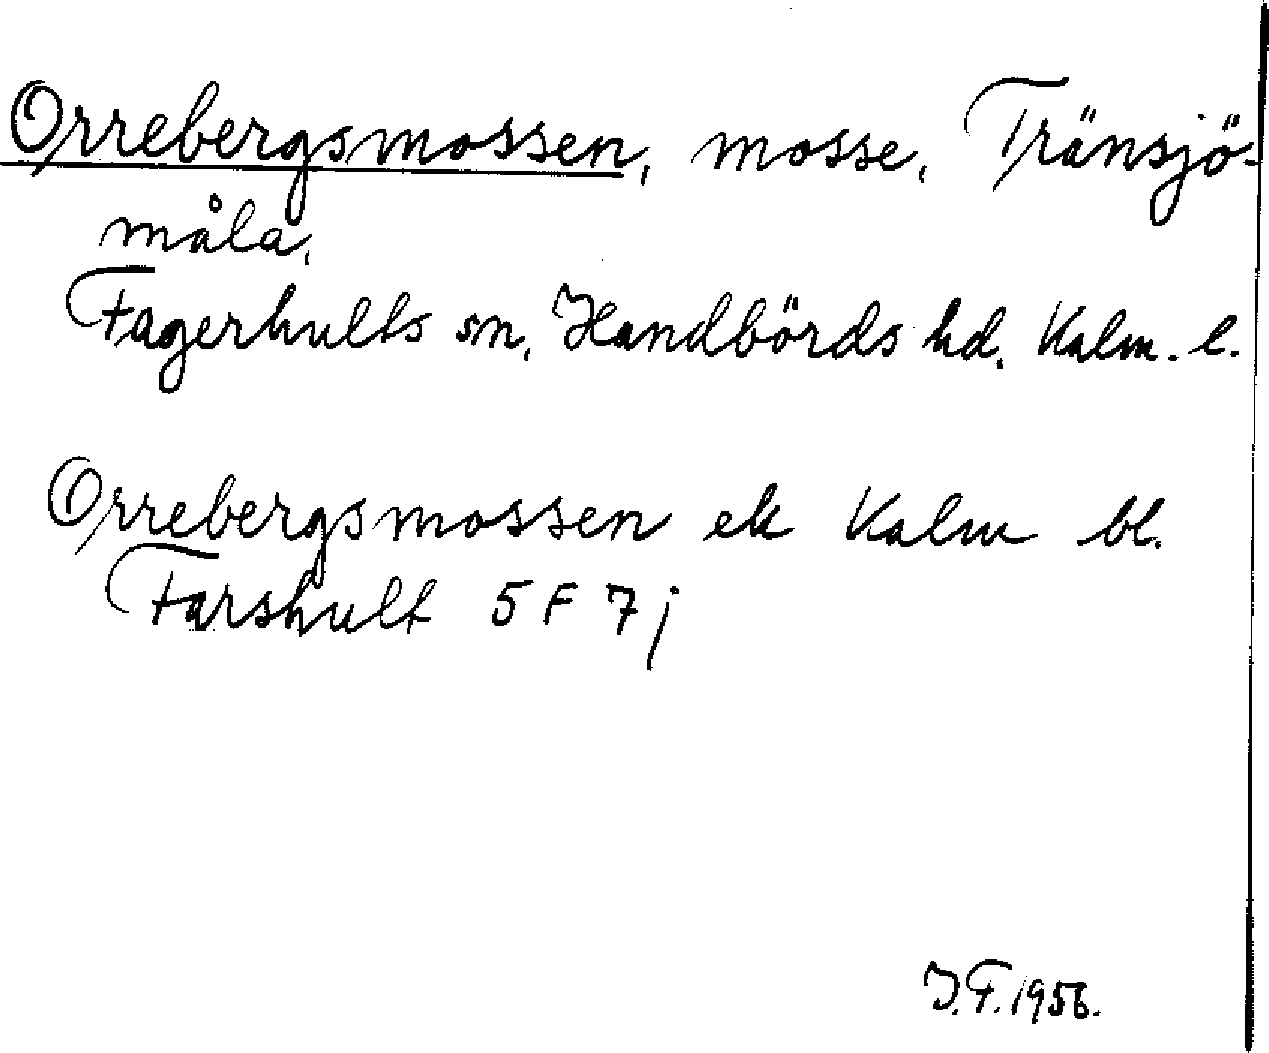 Orrebergsmossen, mosse, Tränsjö-
måla,
Fagerhults sn, Handbörds hd. Kalm. l.
Orrebergsmossen ek Kalm bl.
Farshult 5 F 7 j
J.F. 1956.